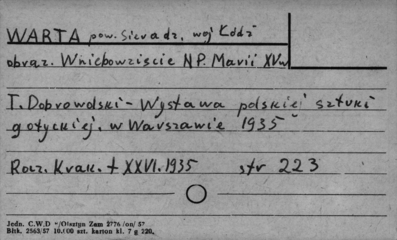 WARTA pow. Sieradz, woj Łódź
obraz. Wniebowziście N.P. Marii XVw
T. Dobrowolski - Wystawa polskiej sztuki
gotyckiej. w Warszawie 1935
Rocz. Krak. t XXVI. 1935 str 223
Jedn. C.W.D Olsztyn Zam 2776 /on/ 57
Bhk. 2563/57 10.000 szt. karton kl. 7 g 220.